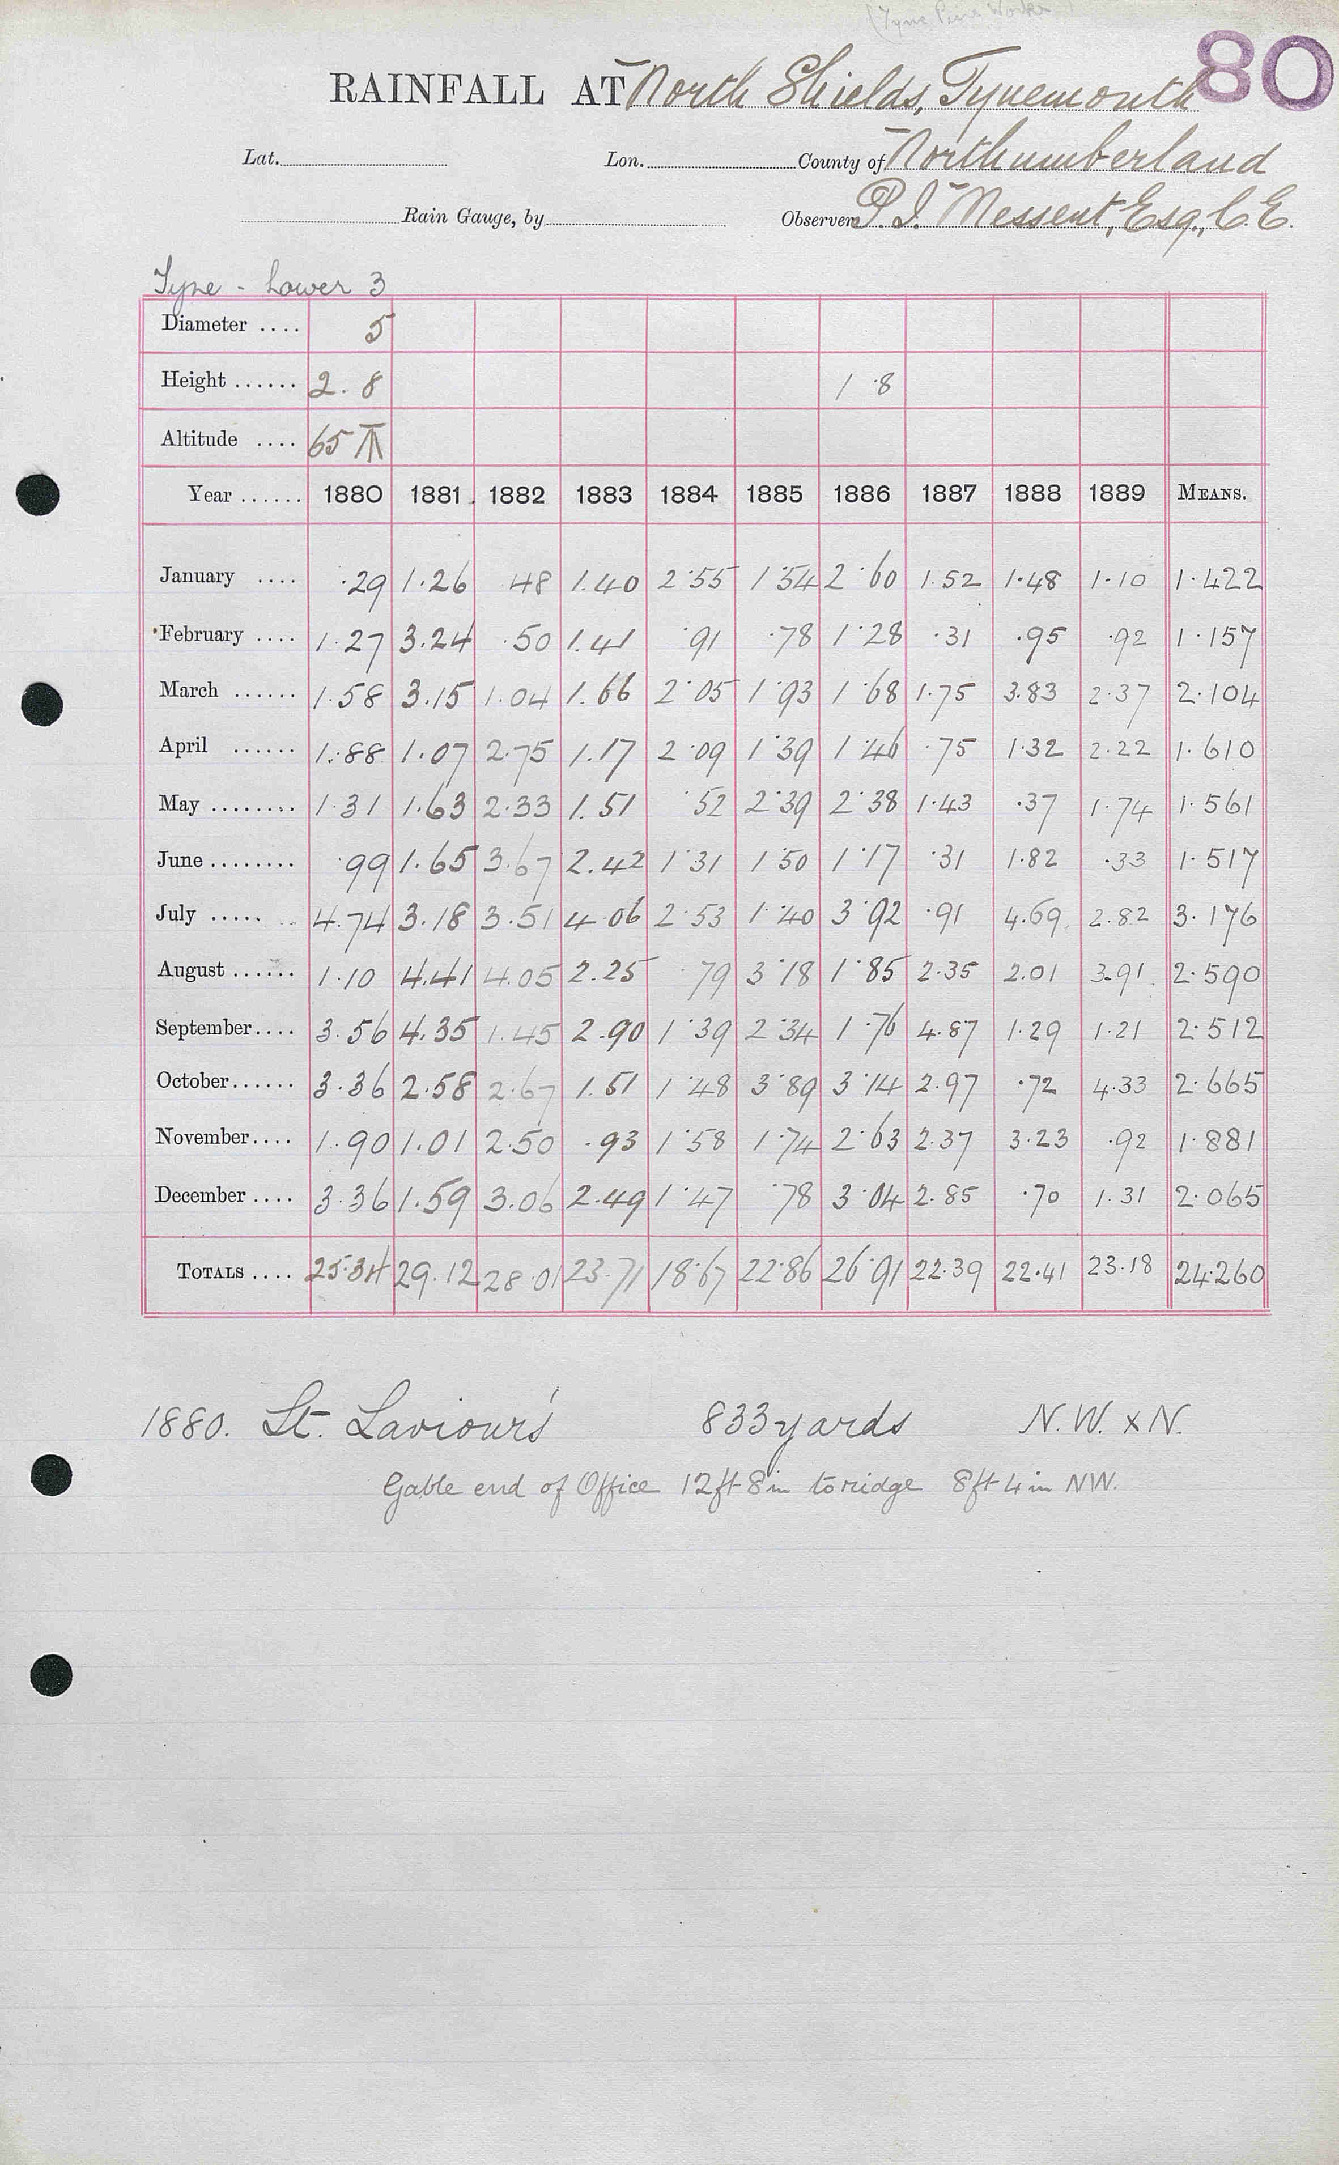 (Tyne Pier Works)
80
RAINFALL AT North Shields, Tynemouth
Lat. Lon. County of Northumberland
Rain Gauge, by Observer P. J. Messent, Esq., C.E.
Tyne - Lower 3
Diameter .... 5
Height ...... 2.8 1.8
Altitude .... 65
Year ...... 1880 1881 1882 1883 1884 1885 1886 1887 1888 1889 MEANS.
January .... .29 1.26 .48 1.40 2.55 1.54 2.60 1.52 1.48 1.10 1.422
February .... 1.27 3.24 .50 1.41 .91 .78 1.28 .31 .95 .92 1.157
March ...... 1.58 3.15 1.04 1.66 2.05 1.93 1.68 1.75 3.83 2.37 2.104
April ...... 1.88 1.07 2.75 1.17 2.09 1.39 1.46 .75 1.32 2.22 1.610
May ........ 1.31 1.63 2.33 1.51 .52 2.39 2.38 1.43 .37 1.74 1.561
June ........ .99 1.65 3.67 2.42 1.31 1.50 1.17 .31 1.82 .33 1.517
July ..... 4.74 3.18 3.51 4.06 2.53 1.40 3.92 .91 4.69 2.82 3.176
August ...... 1.10 4.41 4.05 2.25 .79 3.18 1.85 2.35 2.01 3.91 2.590
September .... 3.56 4.35 1.45 2.90 1.39 2.34 1.76 4.87 1.29 1.21 2.512
October ...... 3.36 2.58 2.67 1.51 1.48 3.89 3.14 2.97 .72 4.33 2.665
November .... 1.90 1.01 2.50 .93 1.58 1.74 2.63 2.37 3.23 .92 1.881
December .... 3.36 1.59 3.06 2.49 1.47 .78 3.04 2.85 .70 1.31 2.065
TOTALS .... 25.34 29.12 28.01 23.71 18.67 22.86 26.91 22.39 22.41 23.18 24.260
1880. St. Saviour's 833 yards N.W. x N.
Gable end of Office 12 ft 8 in to ridge 8 ft 4 in NW.